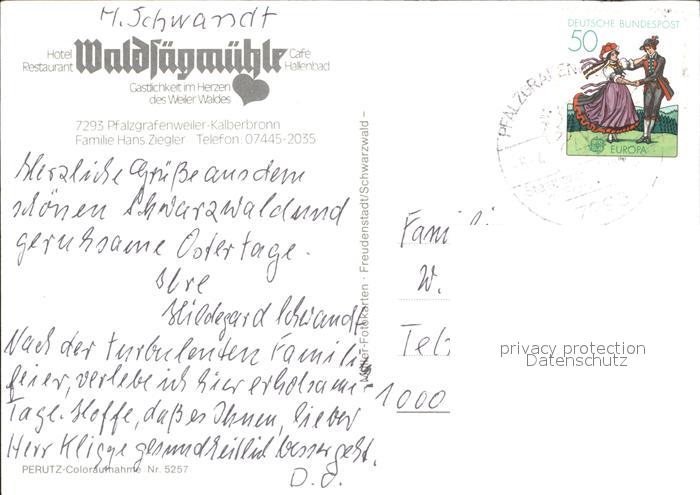 H. Schwandt
Hotel Waldsägmühle Cafe
Restaurant Hallenbad
Gastlichkeit im Herzen
des Weiler Waldes
7293 Pfalzgrafenweiler-Kalberbronn
Familie Hans Ziegler Telefon: 07445-2035
Herzliche Grüße aus dem
schönen Schwarzwald und
geruhsame Ostertage.
Ihre
Hildegard Schwandt
Nach der turbulenten Familien
feier, verlebe ich hier erholsame
Tage. Hoffe, daß es Ihnen, lieber
Herr Kligge gesundheitlich besser geht.
D. O.
PERUTZ-Coloraufnahme Nr. 5257
-Fotokarten · Freudenstadt/Schwarzwald –
DEUTSCHE BUNDESPOST
50
EUROPA
1981
PFALZGRAFEN
7293
Fami
W.
Telt
1000
privacy protection
Datenschutz